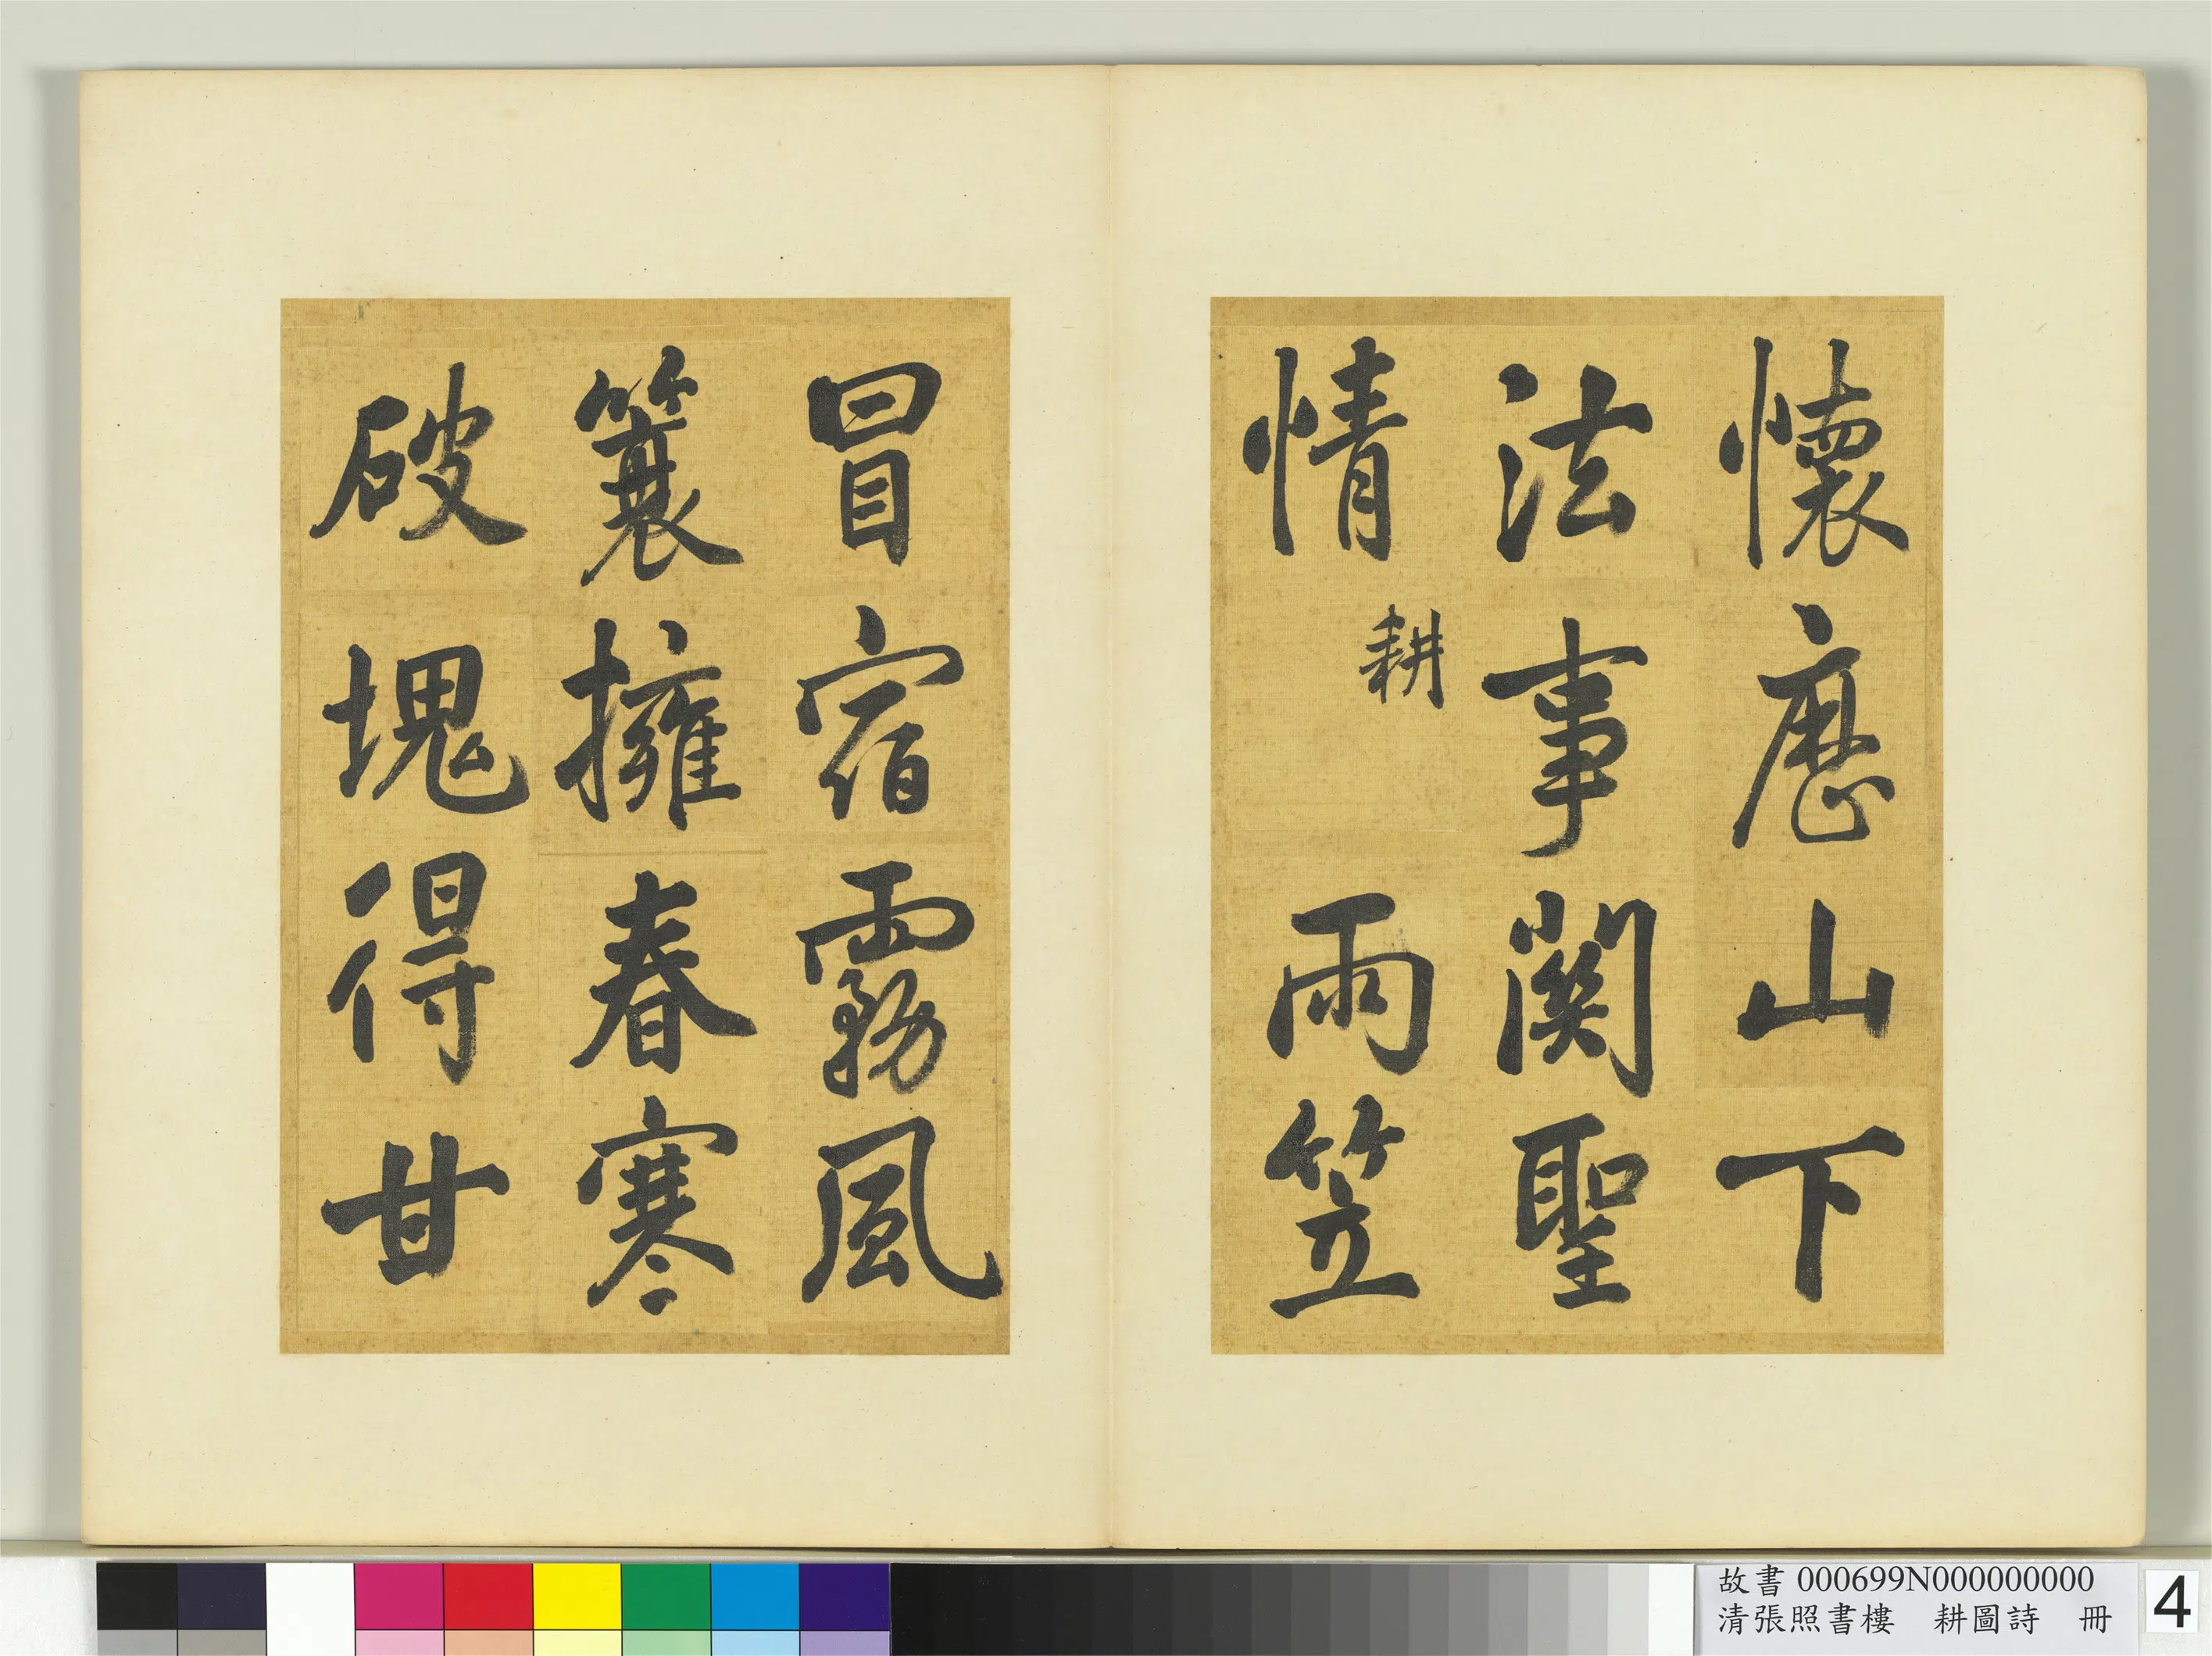 懷歷山下
法事關聖
情 耕 雨笠
冒宿霧風
簑擁春寒
破塊得甘
故書 000699N000000000
清張照書樓　耕圖詩　冊
4